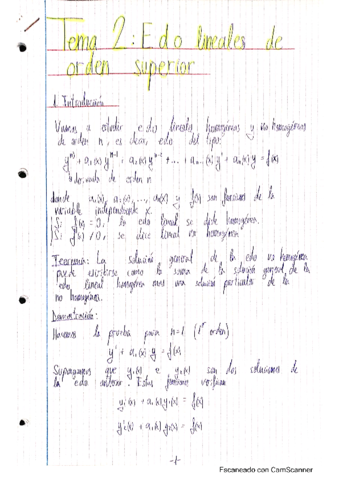 Tema 2: Edo lineales de
orden superior
1. Introducción
Vamos a estudiar edo lineales homogéneas y no homogéneas
de orden n, es decir, edo del tipo:
y^(n) + a₁(x) y^(n-1) + a₂(x) y^(n-2) + ... + aₙ₋₁(x) y' + aₙ(x) y = f(x)
derivada de orden n
donde a₁(x), a₂(x), ..., aₙ(x) y f(x) son funciones de la
variable independiente x.
Si f(x) = 0, la edo lineal se dice homogénea.
Si f(x) ≠ 0, se dice lineal no homogénea.
Teorema: La solución general de la edo no homogénea
puede escribirse como la suma de la solución general de la
edo lineal homogénea más una solución particular de la
no homogénea.
Demostración:
Haremos la prueba para n=1 (1er orden)
y' + a₁(x) y = f(x)
Supongamos que y₁(x) e y₂(x) son dos soluciones de
la edo anterior. Estas funciones verifican
y₁'(x) + a₁(x) y₁(x) = f(x)
y₂'(x) + a₁(x) y₂(x) = f(x)
-1-
Escaneado con CamScanner